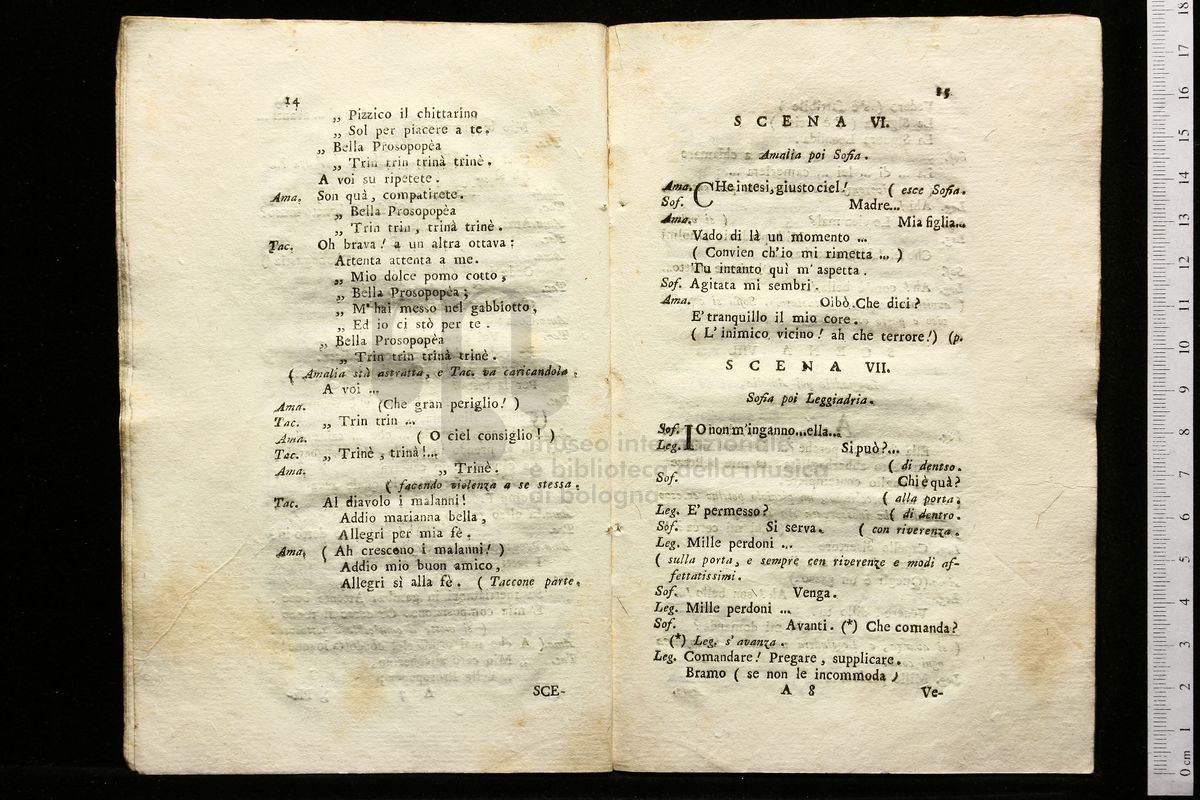 14
„ Pizzico il chittarino
„ Sol per piacere a te.
„ Bella Prosopopèa
„ Trin trin trinà trinè.
A voi su ripetete.
Ama. Son quà, compatirete.
„ Bella Prosopopèa
„ Trin trin, trinà trinè.
Tac. Oh brava! a un altra ottava:
Attenta attenta a me.
„ Mio dolce pomo cotto,
„ Bella Prosopopèa;
„ M' hai messo nel gabbiotto,
„ Ed io ci stò per te.
„ Bella Prosopopèa
„ Trin trin trinà trinè.
( Amalia stà astratta, e Tac. va caricandola.
A voi ...
Ama. (Che gran periglio! )
Tac. „ Trin trin ...
Ama. ( O ciel consiglio! )
Tac. „ Trinè, trinà!...
Ama. „ Trinè.
( facendo violenza a se stessa.
Tac. Al diavolo i malanni!
Addio marianna bella,
Allegri per mia fè.
Ama. ( Ah crescono i malanni! )
Addio mio buon amico,
Allegri sì alla fè. ( Taccone parte.
SCE-
15
SCENA VI.
Amalia poi Sofia.
Ama. CHe intesi, giusto ciel! ( esce Sofia.
Sof. Madre...
Ama. Mia figlia...
Vado di là un momento ...
( Convien ch'io mi rimetta ... )
Tu intanto quì m' aspetta.
Sof. Agitata mi sembri.
Ama. Oibò. Che dici?
E' tranquillo il mio core.
( L' inimico vicino! ah che terrore!) (p.
SCENA VII.
Sofia poi Leggiadria.
Sof. IO non m'inganno...ella...
Leg. Si può?...
( di dentso.
Sof. Chi è quà?
( alla porta.
Leg. E' permesso? ( di dentro.
Sof. Si serva. ( con riverenza.
Leg. Mille perdoni ...
( sulla porta, e sempre cen riverenze e modi af-
fettatissimi.
Sof. Venga.
Leg. Mille perdoni ...
Sof. Avanti. (*) Che comanda?
(*) Leg. s' avanza.
Leg. Comandare! Pregare, supplicare.
Bramo ( se non le incommoda )
A 8 Ve-
museo internazionale
e biblioteca della musica
di bologna
0 cm 1 2 3 4 5 6 7 8 9 10 11 12 13 14 15 16 17 18